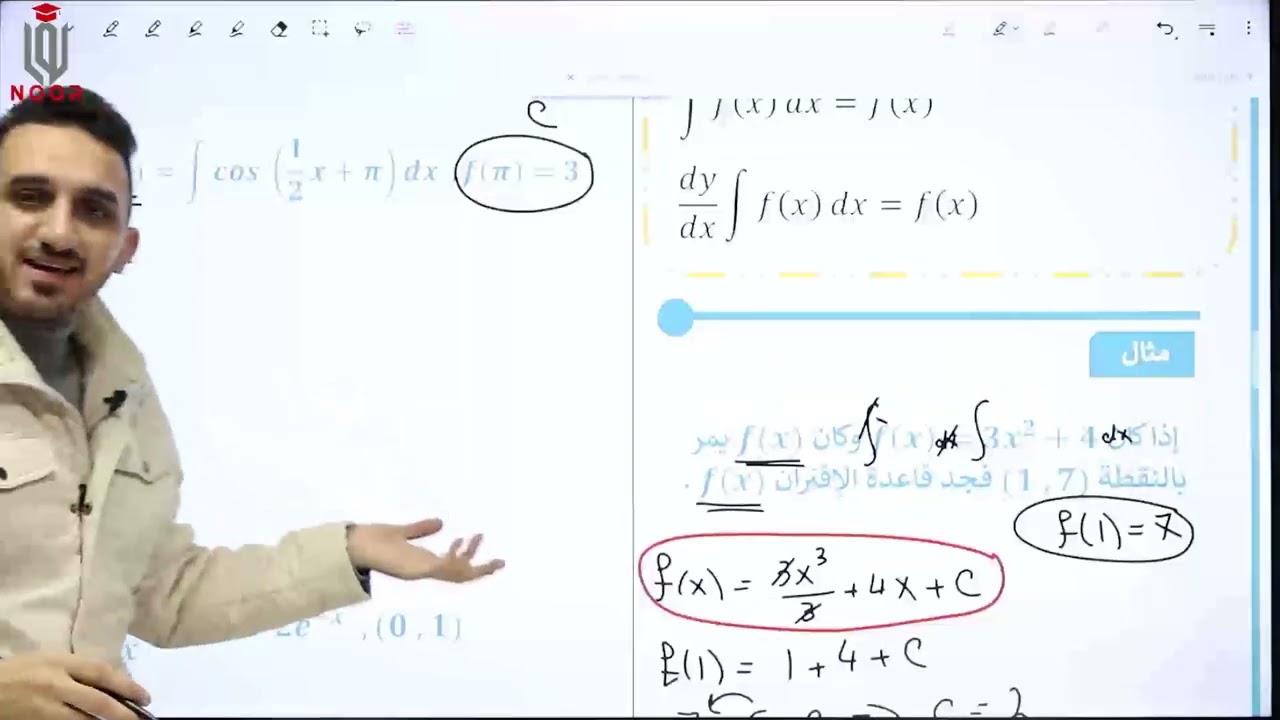 NOOR
C
= ∫ cos (1/2 x + π) dx f(π) = 3
, (0 , 1)
∫ f(x) dx = f(x)
dy/dx ∫ f(x) dx = f(x)
مثال
إذا كان f(x) dx = ∫ 3x² + 4 dx وكان f(x) يمر
بالنقطة (1 , 7) فجد قاعدة الإقتران f(x) .
f(1) = 7
f(x) = 3x³/3 + 4x + C
f(1) = 1 + 4 + C